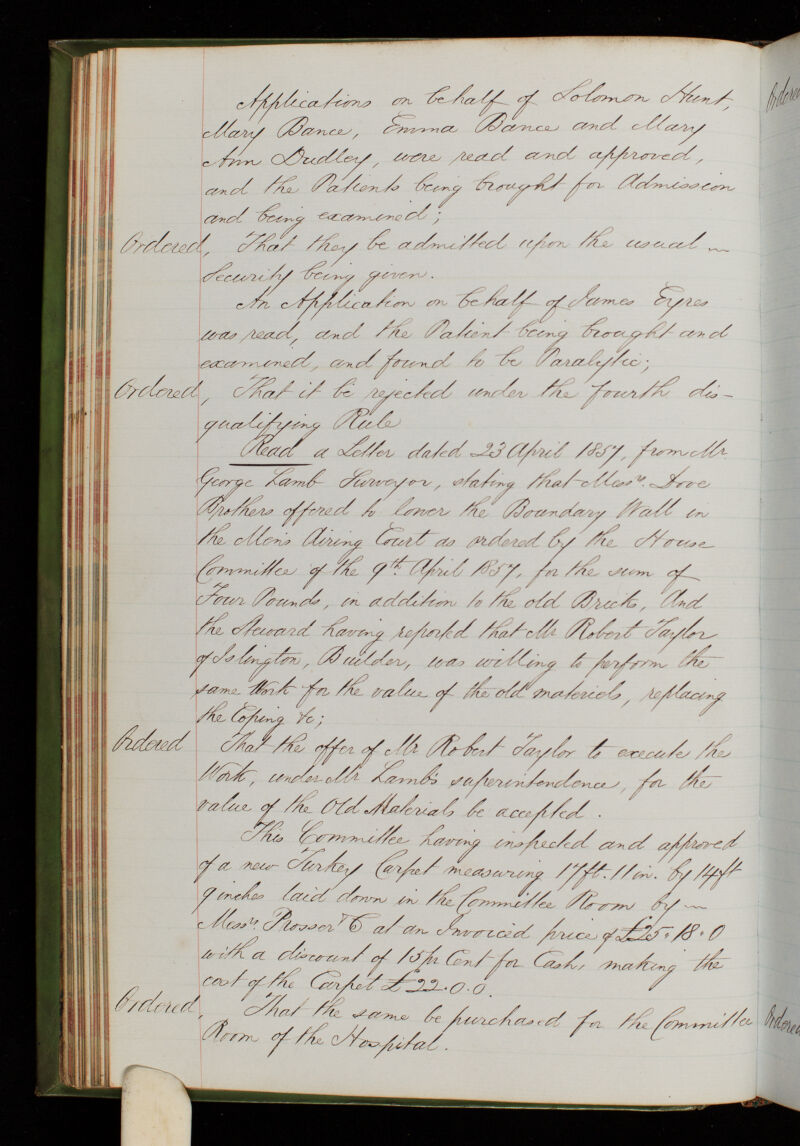 Applications on behalf of Solomon Hunt,
Mary Bance, Emma Bance and Mary
Ann Dudley, were read and approved,
and the Patients being brought for Admission
and being examined;
Ordered, That they be admitted upon the usual
Security being given.
An Application on behalf of James Eyres
was read, and the Patient being brought and
examined, and found to be Paralytic;
Ordered, That it be rejected under the fourth dis-
qualifying Rule
Read a Letter dated 23 April 1857, from Mr.
George Lamb Surveyor, stating that Messrs. Dove
Brothers offered to lower the Boundary Wall in
the Men's Airing Court as ordered by the House
Committee of the 9th April 1857, for the sum of
Four Pounds, in addition to the old Bricks, And
the Steward having reported that Mr Robert Taylor
of Islington, Builder, was willing to perform the
same Work for the value of the old materials, replacing
the Coping &c;
Ordered That the offer of Mr Robert Taylor to execute the
Work, under Mr Lamb's superintendence, for the
value of the Old Materials be accepted.
This Committee having inspected and approved
of a new Turkey Carpet measuring 17ft. 11in. by 14ft
9 inches laid down in the Committee Room by
Messrs. Prosser & C at an Invoiced price of £25.18.0
with a discount of 15 pr Cent for Cash, making the
cost of the Carpet £22.0.0.
Ordered, That the same be purchased for the Committee
Room of the Hospital.
Ordered
Ordered